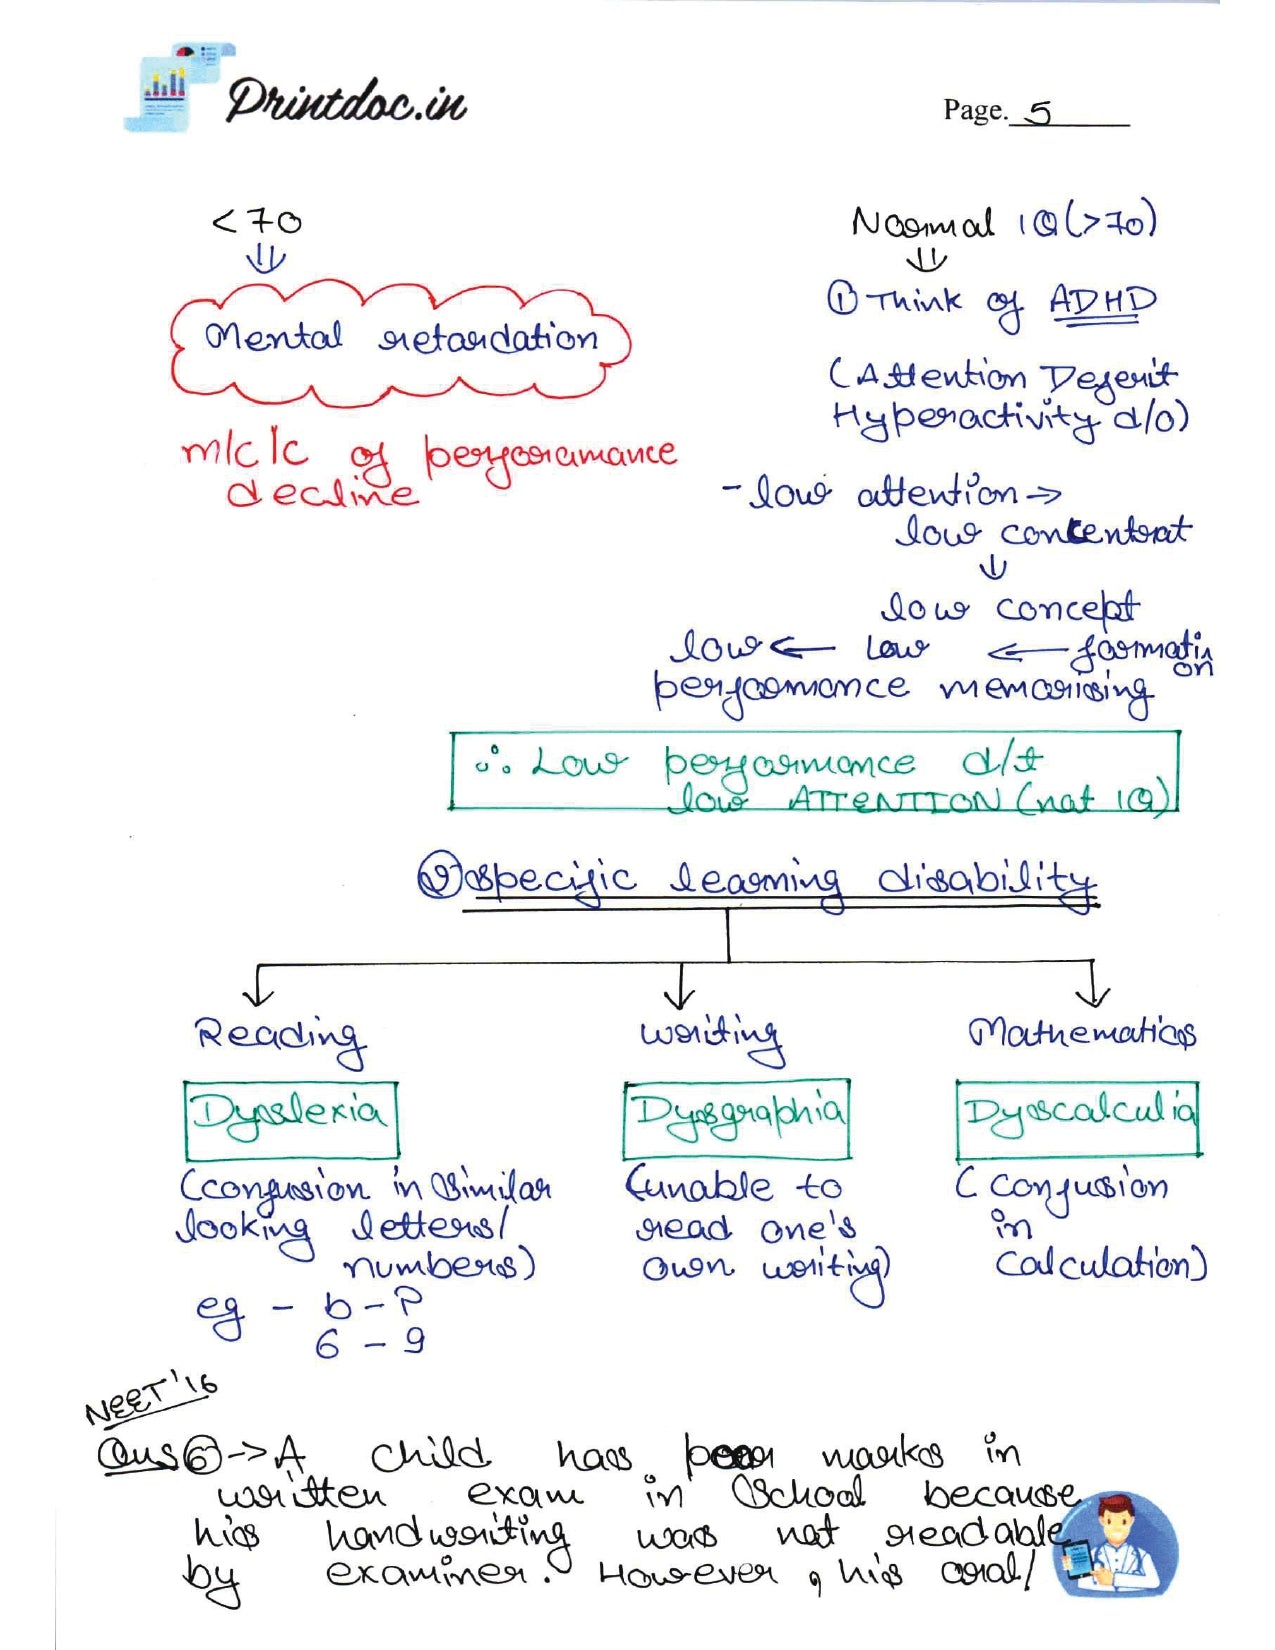 Printdoc.in
Page. 5
<70
⇓
Mental retardation
m/c/c of perforamance
decline
Normal IQ(>70)
⇓
① Think of ADHD
(Attention Deferit
Hyperactivity d/o)
- low attention →
low concentrat
↓
low concept
low ← Low ← formati
on
performance memorising
∴ Low performance d/t
low ATTENTION (not IQ)
② specific learning disability
Reading
Dyslexia
(confusion in similar
looking letters/
numbers)
eg - b - P
6 - 9
writing
Dysgraphia
(unable to
read one's
own writing)
Mathematics
Dyscalculia
(confusion
in
calculation)
NEET'16
Ques⑥ → A child has poor marks in
written exam in School because
his handwriting was not readable
by examiner. However, his oral/